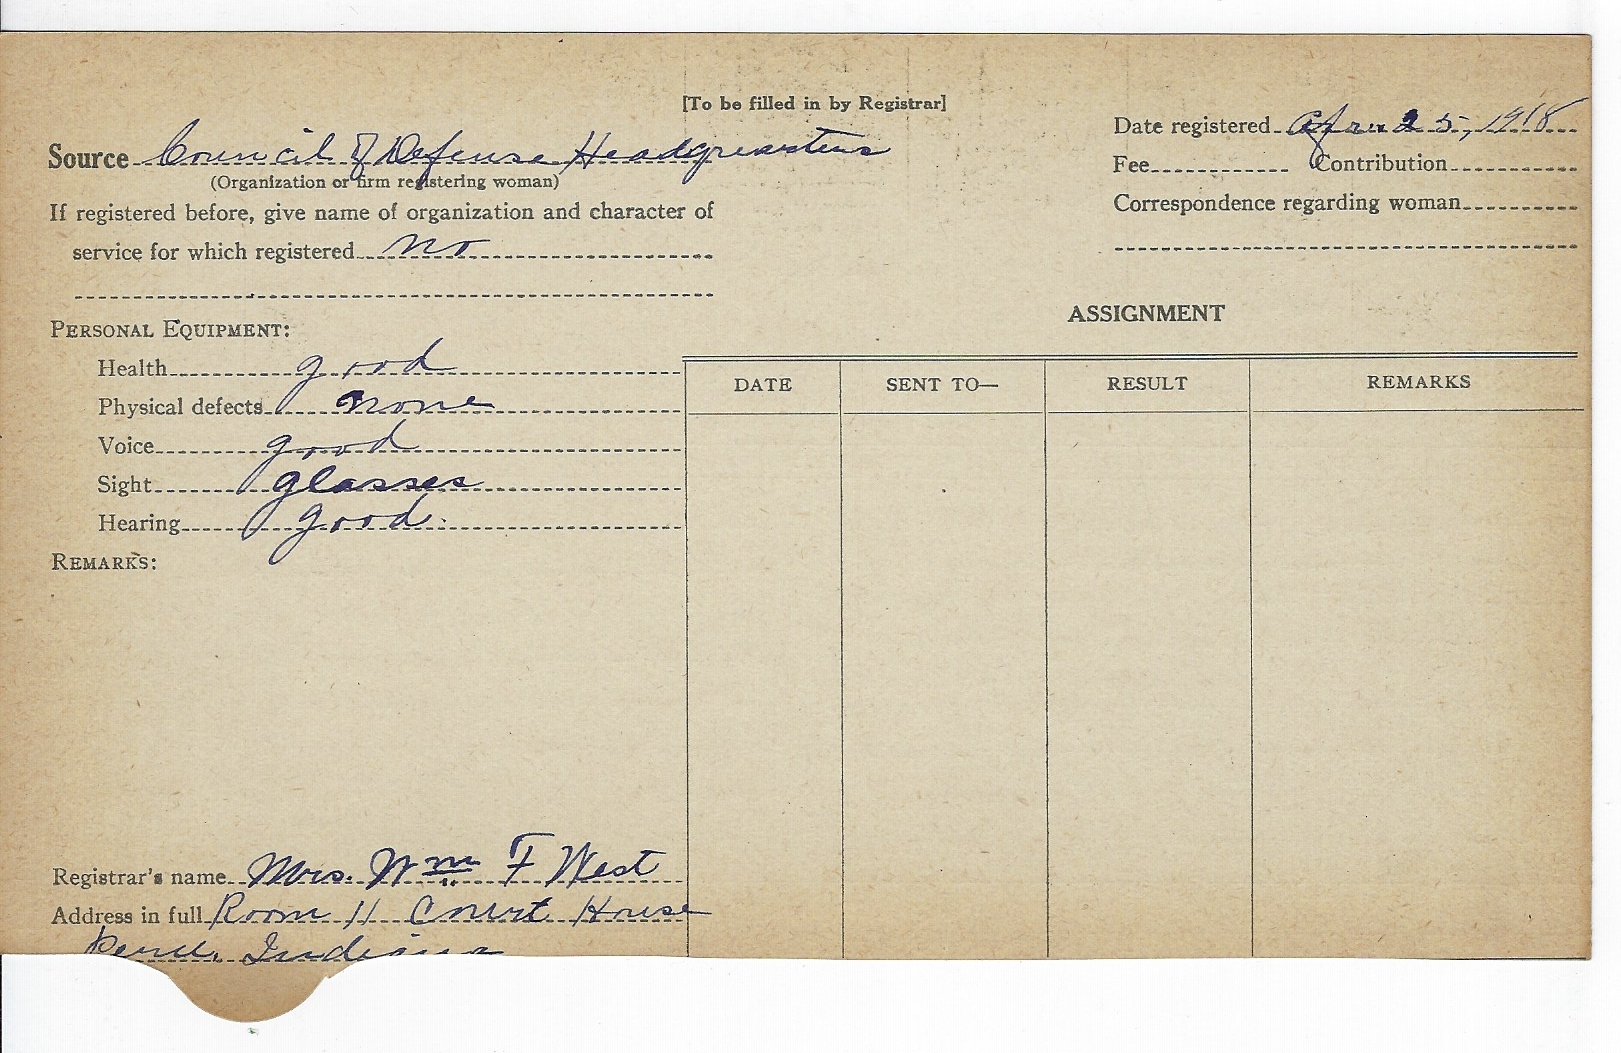 [To be filled in by Registrar]
Source Council of Defense Headquarters
(Organization or firm registering woman)
If registered before, give name of organization and character of
service for which registered no
Date registered Apr 25, 1918
Fee Contribution
Correspondence regarding woman
PERSONAL EQUIPMENT:
Health good
Physical defects none
Voice good
Sight glasses
Hearing good.
REMARKS:
Registrar's name Mrs. Wm F West
Address in full Room 11 Court House
Peru, Indiana
ASSIGNMENT
DATE SENT TO— RESULT REMARKS